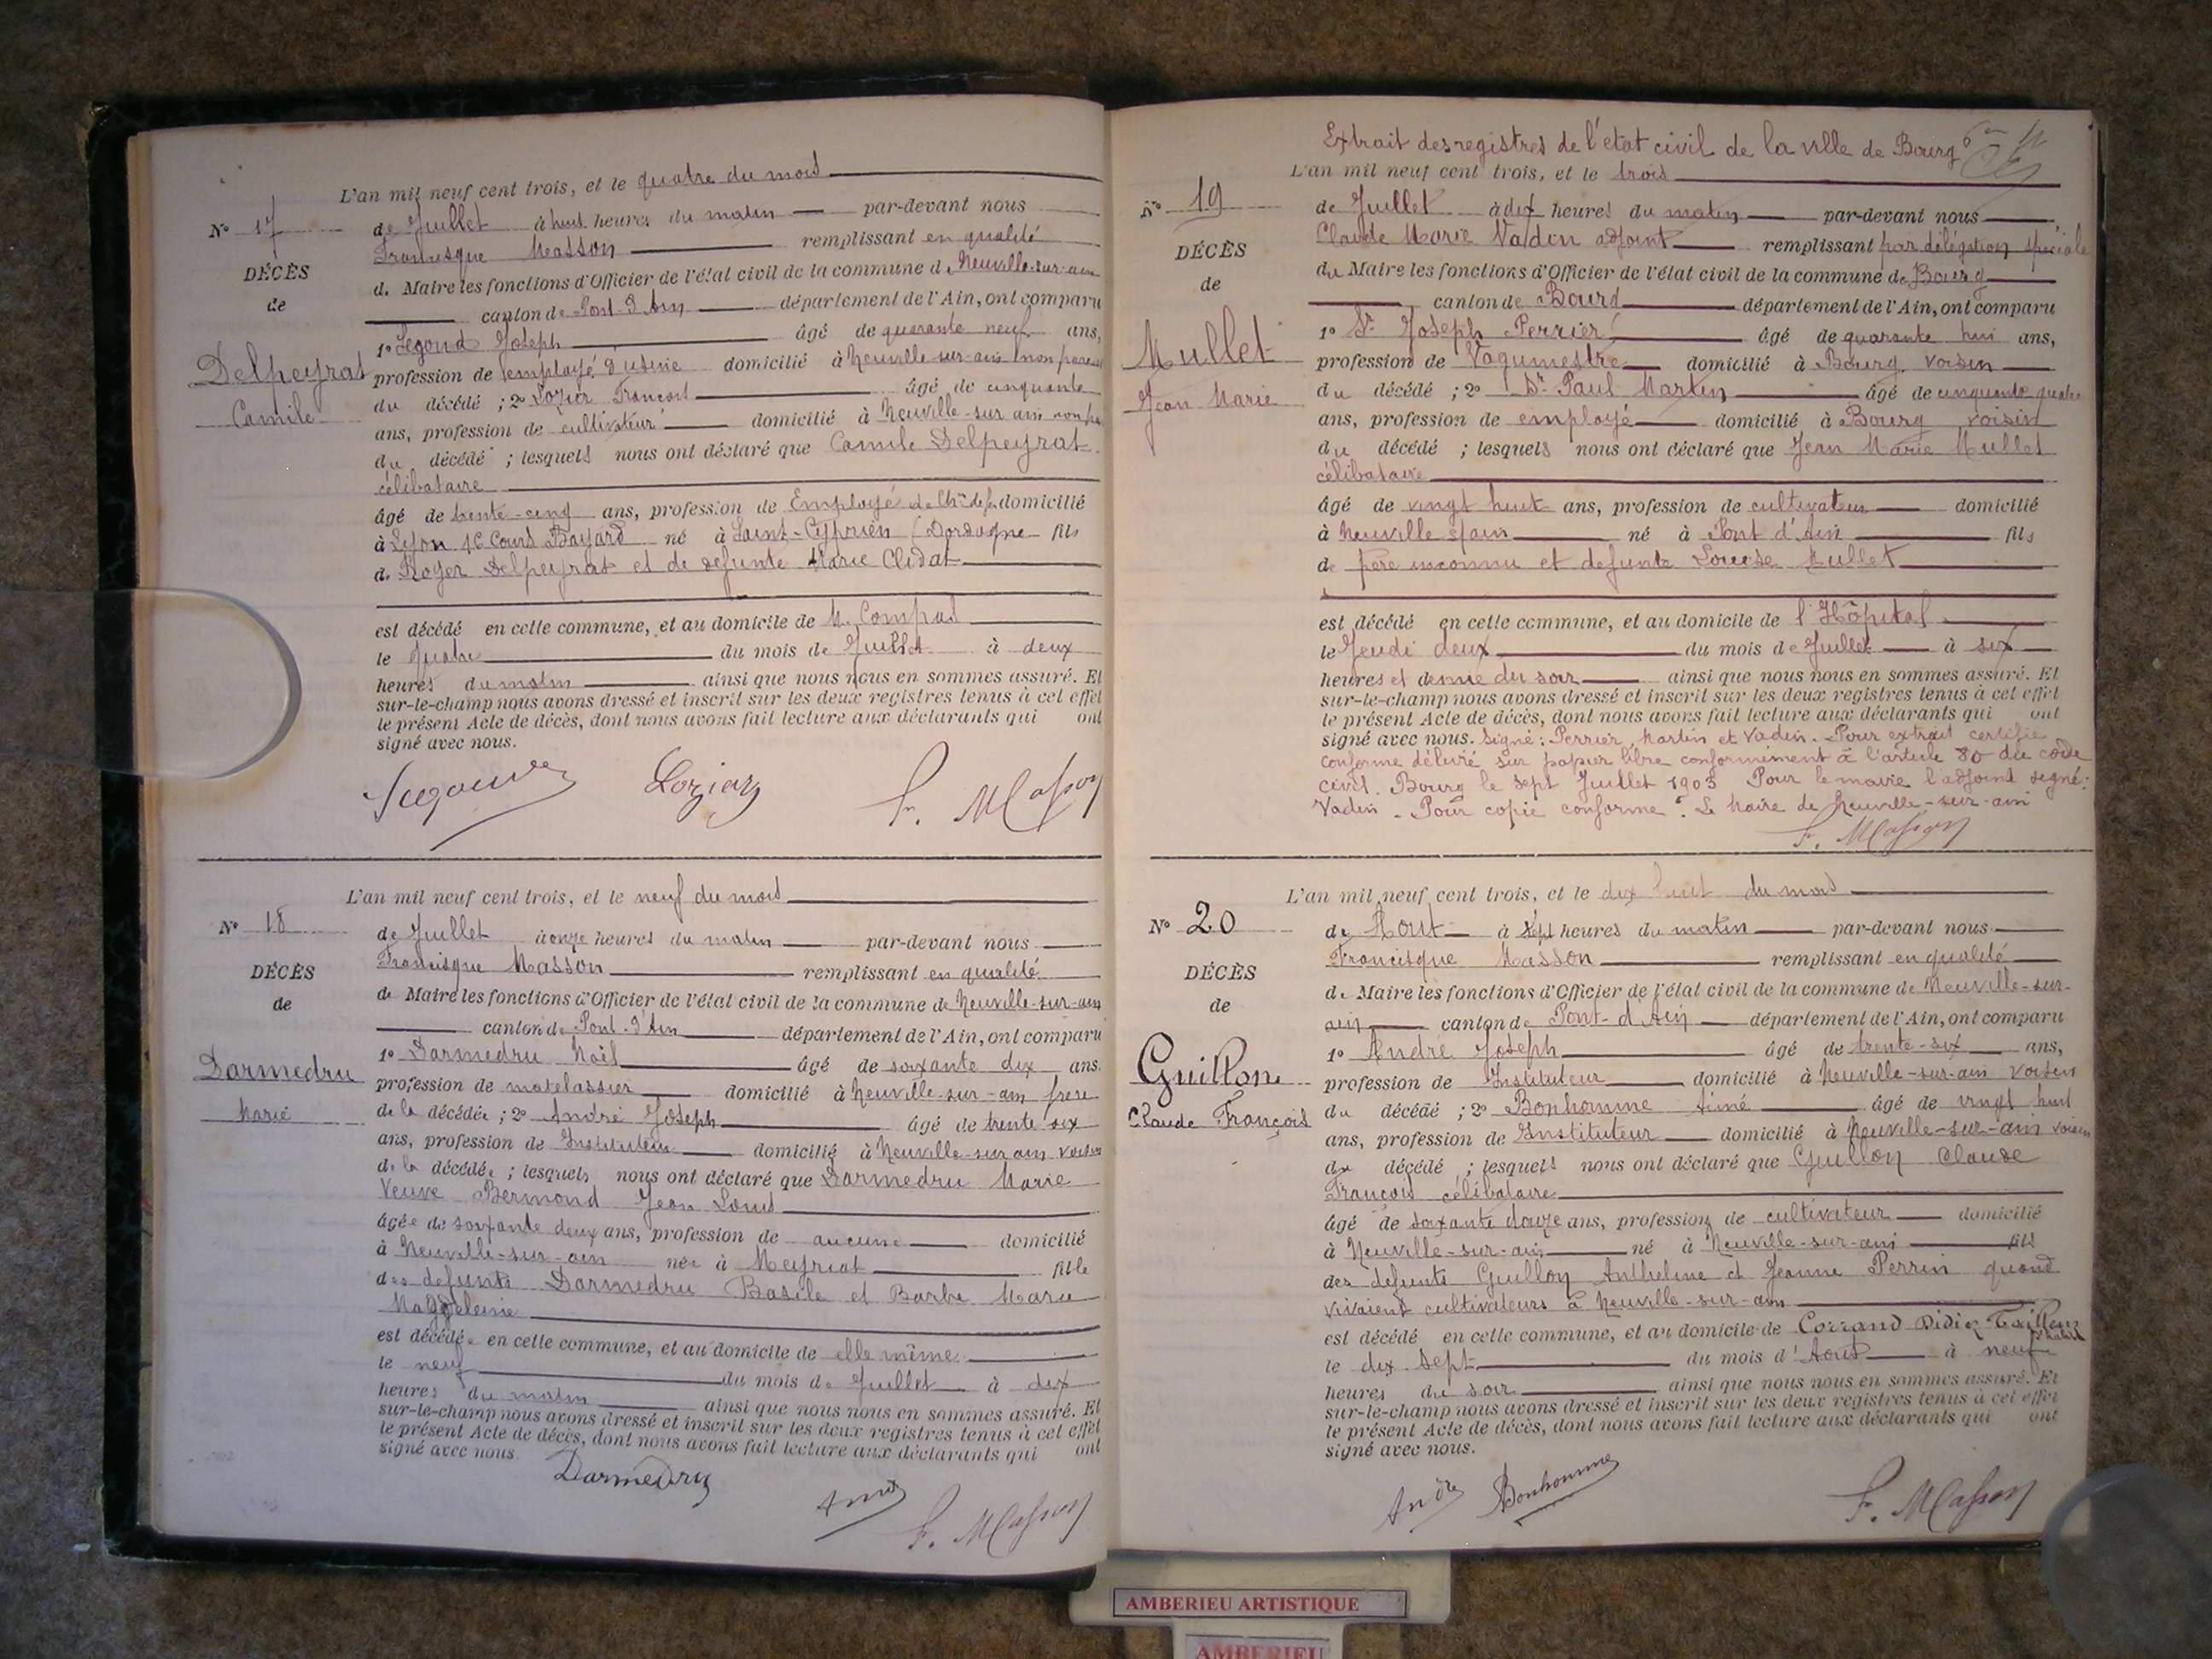 L'an mil neuf cent trois, et le quatre du mois
N° 17
de Juillet à huit heures du matin par-devant nous
Francisque Masson remplissant en qualité
DÉCÈS
de Maire les fonctions d'Officier de l'état civil de la commune de Neuville-sur-ain
de
canton de Pont-d'Ain département de l'Ain, ont comparu
1° Segond Joseph âgé de quarante neuf ans,
Delpeyrat
profession de employé d'usine domicilié à Neuville-sur-ain non parent
Camile
du décédé ; 2° Lozier François âgé de cinquante
ans, profession de cultivateur domicilié à Neuville-sur-ain
du décédé ; lesquels nous ont déclaré que Camile Delpeyrat
célibataire
âgé de trente-cinq ans, profession de Employé de Ch. de fer domicilié
à Lyon 16 Cours Bayard né à Saint-Cyprien (Dordogne fils
de Royer Delpeyrat et de defunte Marie Clidat
est décédé en cette commune, et au domicile de M. Compas
le quatre du mois de Juillet à deux
heures du matin ainsi que nous nous en sommes assuré. Et
sur-le-champ nous avons dressé et inscrit sur les deux registres tenus à cet effet
le présent Acte de décès, dont nous avons fait lecture aux déclarants qui ont
signé avec nous.
Lozier F. Masson
L'an mil neuf cent trois, et le neuf du mois
N° 18
de Juillet à onze heures du matin par-devant nous
Francisque Masson remplissant en qualité
DÉCÈS
de Maire les fonctions d'Officier de l'état civil de la commune de Neuville-sur-ain
de
canton de Pont-d'Ain département de l'Ain, ont comparu
1° Darmedru Noël âgé de soixante dix ans.
Darmedru
profession de matelassier domicilié à Neuville-sur-ain frere
Marie
de la décédée ; 2° André Joseph âgé de trente six
ans, profession de Instituteur domicilié à Neuville-sur-ain voisin
de la décédée ; lesquels nous ont déclaré que Darmedru Marie
Veuve Bermond Jean Louis
âgée de soixante deux ans, profession de aucune domicilié
à Neuville-sur-ain née à Meyriat fille
des defunts Darmedru Basile et Barbe Marie
Magdeleine
est décédée en cette commune, et au domicile de elle même
le neuf du mois de Juillet à dix
heures du matin ainsi que nous nous en sommes assuré. Et
sur-le-champ nous avons dressé et inscrit sur les deux registres tenus à cet effet
le présent Acte de décès, dont nous avons fait lecture aux déclarants qui ont
signé avec nous.
Darmedru André F. Masson
Extrait des registres de l'état civil de la ville de Bourg
L'an mil neuf cent trois, et le trois
N° 19
de Juillet à dix heures du matin par-devant nous
Claude Marie Vadin adjoint remplissant par délégation spéciale
DÉCÈS
du Maire les fonctions d'Officier de l'état civil de la commune de Bourg
de
canton de Bourg département de l'Ain, ont comparu
1° Sr Joseph Perrier âgé de quarante huit ans,
Mullet
profession de Vaguemestre domicilié à Bourg voisin
Jean Marie
du décédé ; 2° Sr Paul Martin âgé de cinquante quatre
ans, profession de employé domicilié à Bourg voisin
du décédé ; lesquels nous ont déclaré que Jean Marie Mullet
célibataire
âgé de vingt huit ans, profession de cultivateur domicilié
à Neuville s/ain né à Pont d'Ain fils
de père inconnu et defunte Louise Mullet
est décédé en cette commune, et au domicile de l'Hôpital
le Jeudi deux du mois de Juillet à six
heures et demie du soir ainsi que nous nous en sommes assuré. Et
sur-le-champ nous avons dressé et inscrit sur les deux registres tenus à cet effet
le présent Acte de décès, dont nous avons fait lecture aux déclarants qui ont
signé avec nous. Signé : Perrier, Martin et Vadin. Pour extrait certifié
conforme délivré sur papier libre conformément à l'article 80 du code
civil. Bourg le sept Juillet 1903 Pour le maire l'adjoint signé:
Vadin. Pour copie conforme. Le Maire de Neuville-sur-ain
F. Masson
L'an mil neuf cent trois, et le dix huit du mois
N° 20
de Aout à sept heures du matin par-devant nous
Francisque Masson remplissant en qualité
DÉCÈS
de Maire les fonctions d'Officier de l'état civil de la commune de Neuville-sur-
de
ain canton de Pont-d'Ain département de l'Ain, ont comparu
1° André Joseph âgé de trente-six ans,
Guillon
profession de Instituteur domicilié à Neuville-sur-ain voisin
Claude François
du décédé ; 2° Bonhomme Aimé âgé de vingt huit
ans, profession de Instituteur domicilié à Neuville-sur-ain voisin
du décédé ; lesquels nous ont déclaré que Guillon Claude
François célibataire
âgé de soixante douze ans, profession de cultivateur domicilié
à Neuville-sur-ain né à Neuville-sur-ain fils
des defunts Guillon Anthelme et Jeanne Perrin quand
vivaient cultivateurs à Neuville-sur-ain
est décédé en cette commune, et au domicile de Corrand Didier Tailleur
d'habits
le dix sept du mois d'Aout à neuf
heures du soir ainsi que nous nous en sommes assuré. Et
sur-le-champ nous avons dressé et inscrit sur les deux registres tenus à cet effet
le présent Acte de décès, dont nous avons fait lecture aux déclarants qui ont
signé avec nous.
André Bonhomme F. Masson
AMBERIEU ARTISTIQUE
AMBERIEU